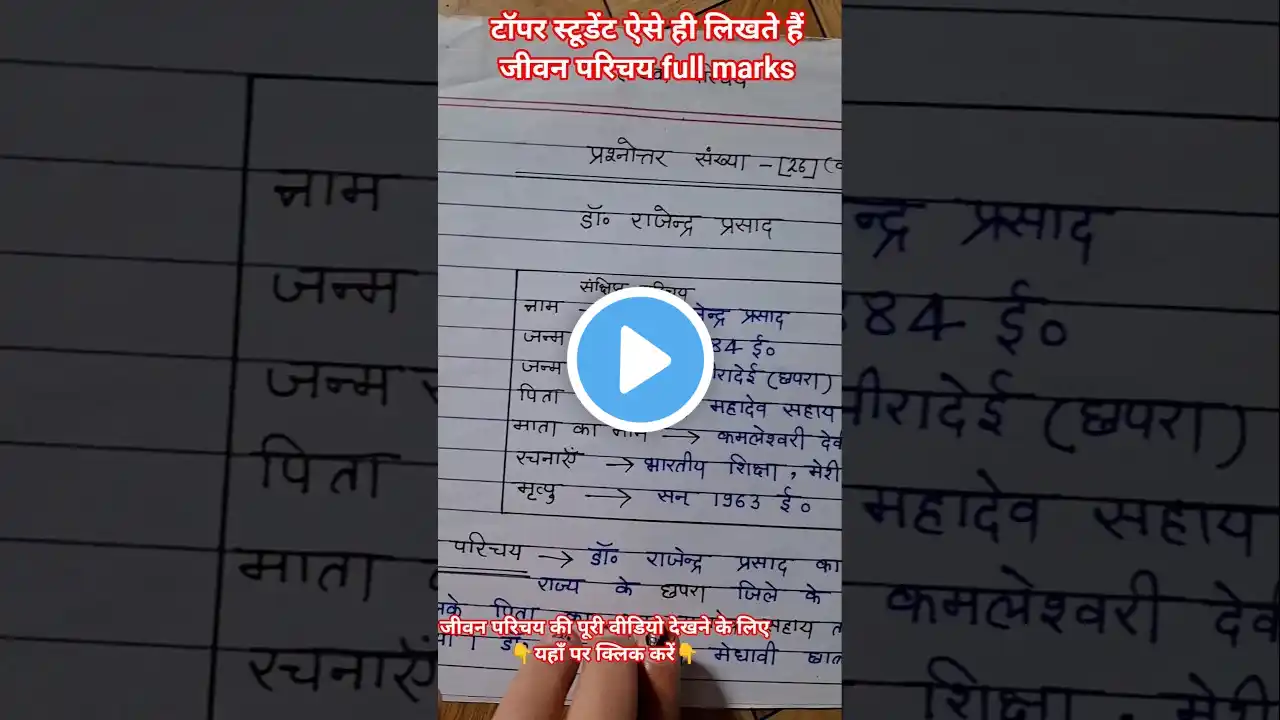 टॉपर स्टूडेंट ऐसे ही लिखते हैं
जीवन परिचय full marks
प्रश्नोत्तर संख्या - [26] (
डॉ० राजेन्द्र प्रसाद
संक्षिप्त
नाम न्द्र प्रसाद
जन्म 84 ई०
जन्म रादेई (छपरा)
पिता महादेव सहाय
माता का नाम → कमलेश्वरी देव
रचनाएँ → भारतीय शिक्षा, मेरी
मृत्यु → सन् 1963 ई०
परिचय → डॉ० राजेन्द्र प्रसाद का
राज्य के छपरा जिले के
के पिता का सहाय
डॉ० मेधावी छात
जीवन परिचय की पूरी वीडियो देखने के लिए
👇यहाँ पर क्लिक करें👇
नाम न्द्र प्रसाद
जन्म 84 ई०
जन्म नीरादेई (छपरा)
पिता महादेव सहाय
माता कमलेश्वरी देव
रचनाएँ शिक्षा, मेरी